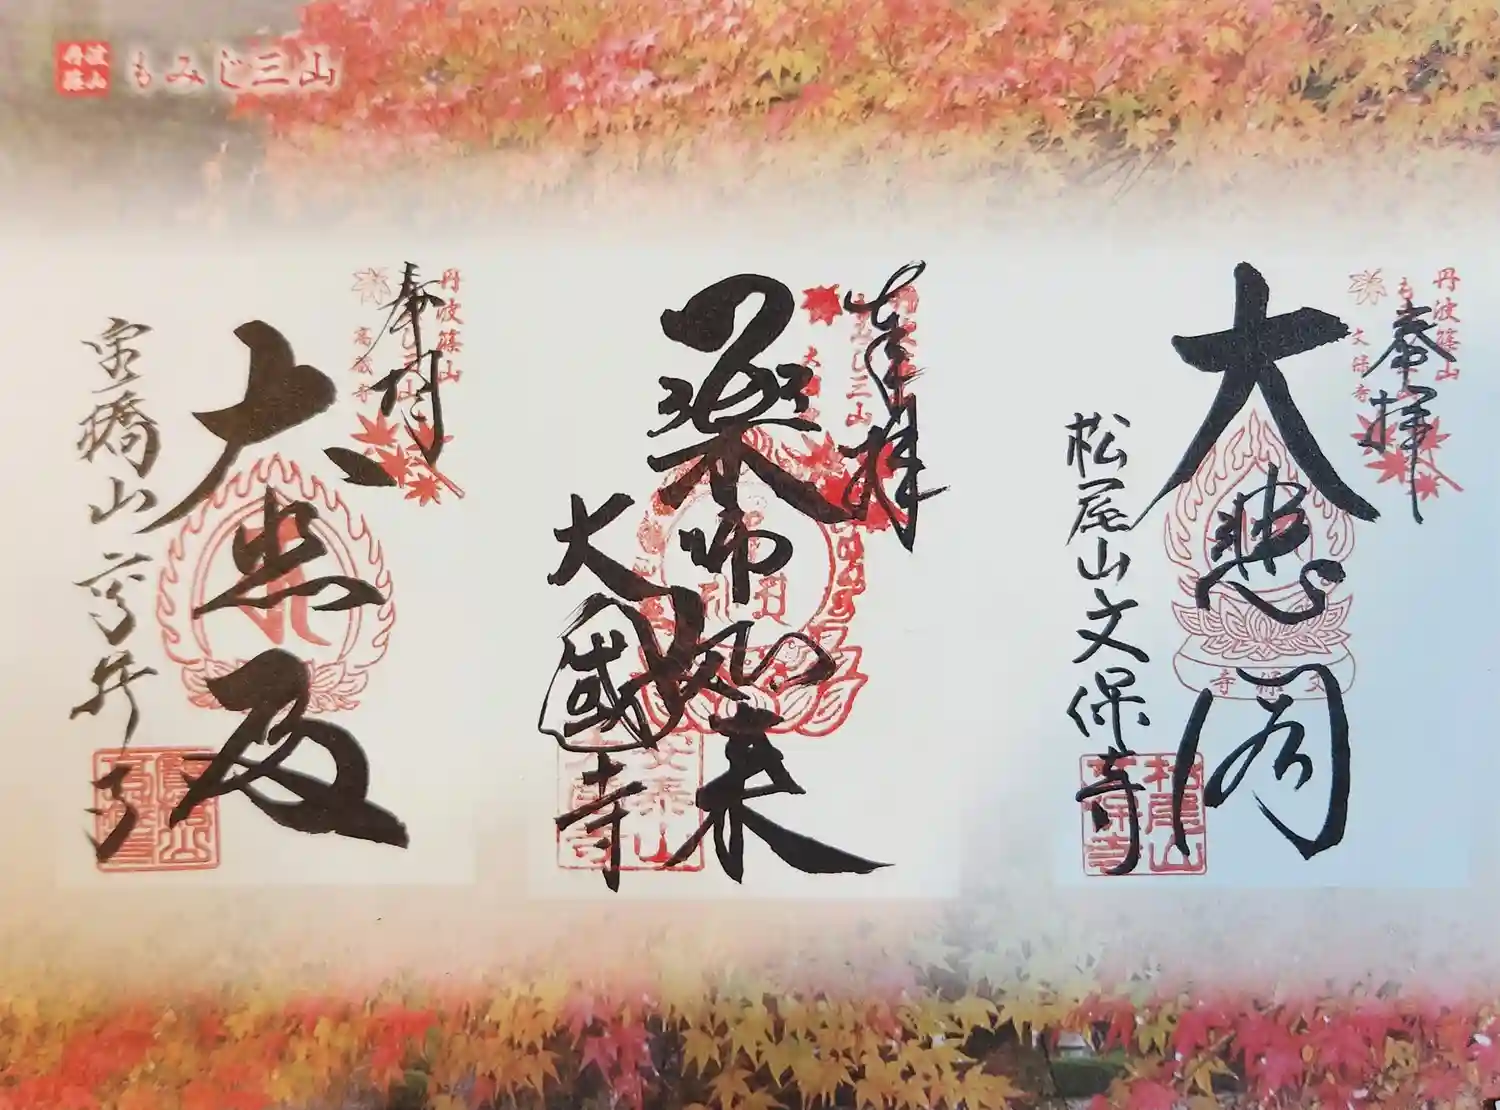 丹波
篠山
もみじ三山
丹波篠山
もみじ三山
文保寺
奉拝
大悲閣
松尾山文保寺
文保寺
松尾山
文保寺
丹波篠山
もみじ三山
奉拝
薬師如来
大國寺
安泰山
大国寺
丹波篠山
もみじ三山
高蔵寺
奉拝
大悲殿
宝橋山高蔵寺